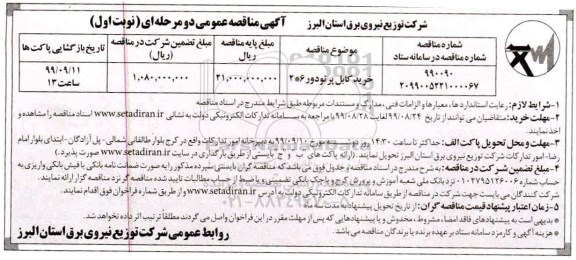 شرکت توزیع نیروی برق استان البرز
آگهی مناقصه عمومی دو مرحله ای (نوبت اول)
شماره مناقصه
شماره مناقصه در سامانه ستاد
موضوع مناقصه
مبلغ پایه مناقصه
ریال
مبلغ تضمین شرکت در مناقصه
(ریال)
تاریخ بازگشایی پاکت ها
۹۹۰۰۹۰
۲۰۹۹۰۰۵۲۲۱۰۰۰۰۶۷
خرید کابل پرتودور ۶*۲
۲۱,۰۰۰,۰۰۰,۰۰۰
۱,۰۸۰,۰۰۰,۰۰۰
۹۹/۰۹/۱۱
ساعت ۱۳
۱- شرایط لازم: رعایت استانداردها، معیارها و الزامات فنی، مدارک و مستندات مربوطه طبق شرایط مندرج در اسناد مناقصه
۲- مهلت خرید: متقاضیان می توانند از تاریخ ۹۹/۰۸/۲۴ لغایت ۹۹/۰۸/۲۸ با مراجعه به سامانه تدارکات الکترونیکی دولت به نشانی www.setadiran.ir اسناد مناقصه را مشاهده و
اخذ نمایند.
۳- مهلت و محل تحویل پاکت الف: حداکثر تا ساعت ۱۴:۳۰ روز مورخ ۹۹/۰۹/۱۰ به دبیرخانه امور تدارکات واقع در کرج بلوار طالقانی شمالی- پل آزادگان- ابتدای بلوار امام
رضا- امور تدارکات شرکت توزیع نیروی برق استان البرز تحویل نمایند. (ارائه پاکت های ب و ج بایستی از طریق بارگذاری در سایت www.setadiran.ir صورت پذیرد.)
۴- مبلغ تضمین شرکت در مناقصه: به شرح مندرج در اسناد مناقصه و جدول فوق می باشد که مناقصه گران بایستی سپرده مذکور را به صورت ضمانت نامه بانکی یا فیش بانکی واریزی به
حساب شماره نزد بانک ملی شعبه آموزش و پرورش کرج و یا چک بانکی تضمینی و یا ضبط از حساب مطالبات تایید شده مناقصه گر نزد مناقصه گزار ارائه نمایند.
شرکت کنندگان می بایست جهت شرکت در مناقصه از طریق سامانه تدارکات الکترونیکی دولت به آدرس www.setadiran.ir و از طریق شماره فراخوان فوق اقدام نمایند.
۵- زمان اعتبار پیشنهاد قیمت مناقصه گران: از تاریخ تحویل پیشنهاد به مدت
* بدیهی است به پیشنهادهای فاقد امضاء، مشروط، مخدوش و یا پیشنهادهایی که پس از مهلت مقرر در این فراخوان واصل می گردند مطلقا ترتیب اثر داده نخواهد شد.
* هزینه آگهی و کارمزد سامانه ستاد بر عهده برنده یا برندگان مناقصه می باشد.
روابط عمومی شرکت توزیع نیروی برق استان البرز